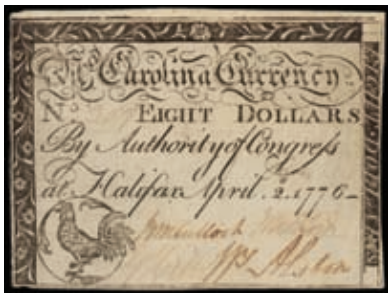 No. Carolina Currency.
No. EIGHT DOLLARS
By Authority of Congress
at Halifax April. 2. 1776